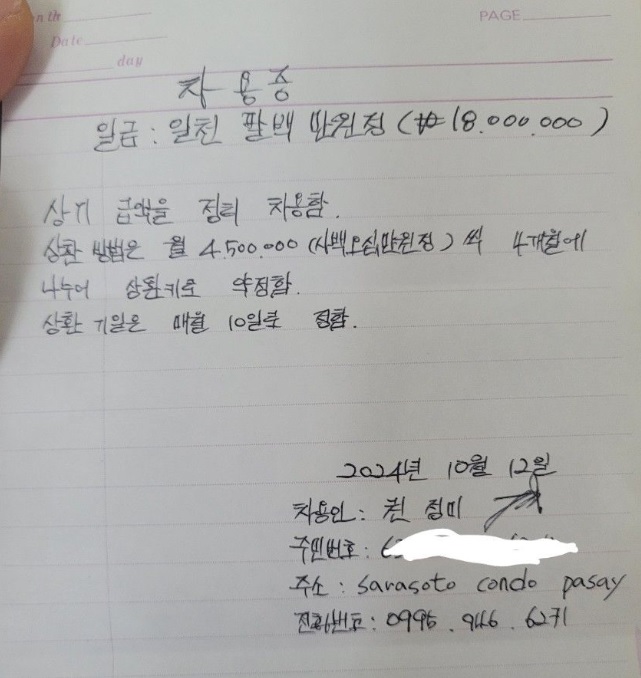 nth
Date
day
PAGE
차용증
일금 : 일천 팔백 만원정 (₩18.000.000)
상기 금액을 정히 차용함.
상환 방법은 월 4.500.000 (사백오십만원정) 씩 4개월에
나누어 상환키로 약정함.
상환 기일은 매월 10일로 정함.
2024년 10월 12일
차용인 : 권 점미
주민번호 : 6
주소 : Sarasoto condo pasay
전화번호 : 0995.946.6271